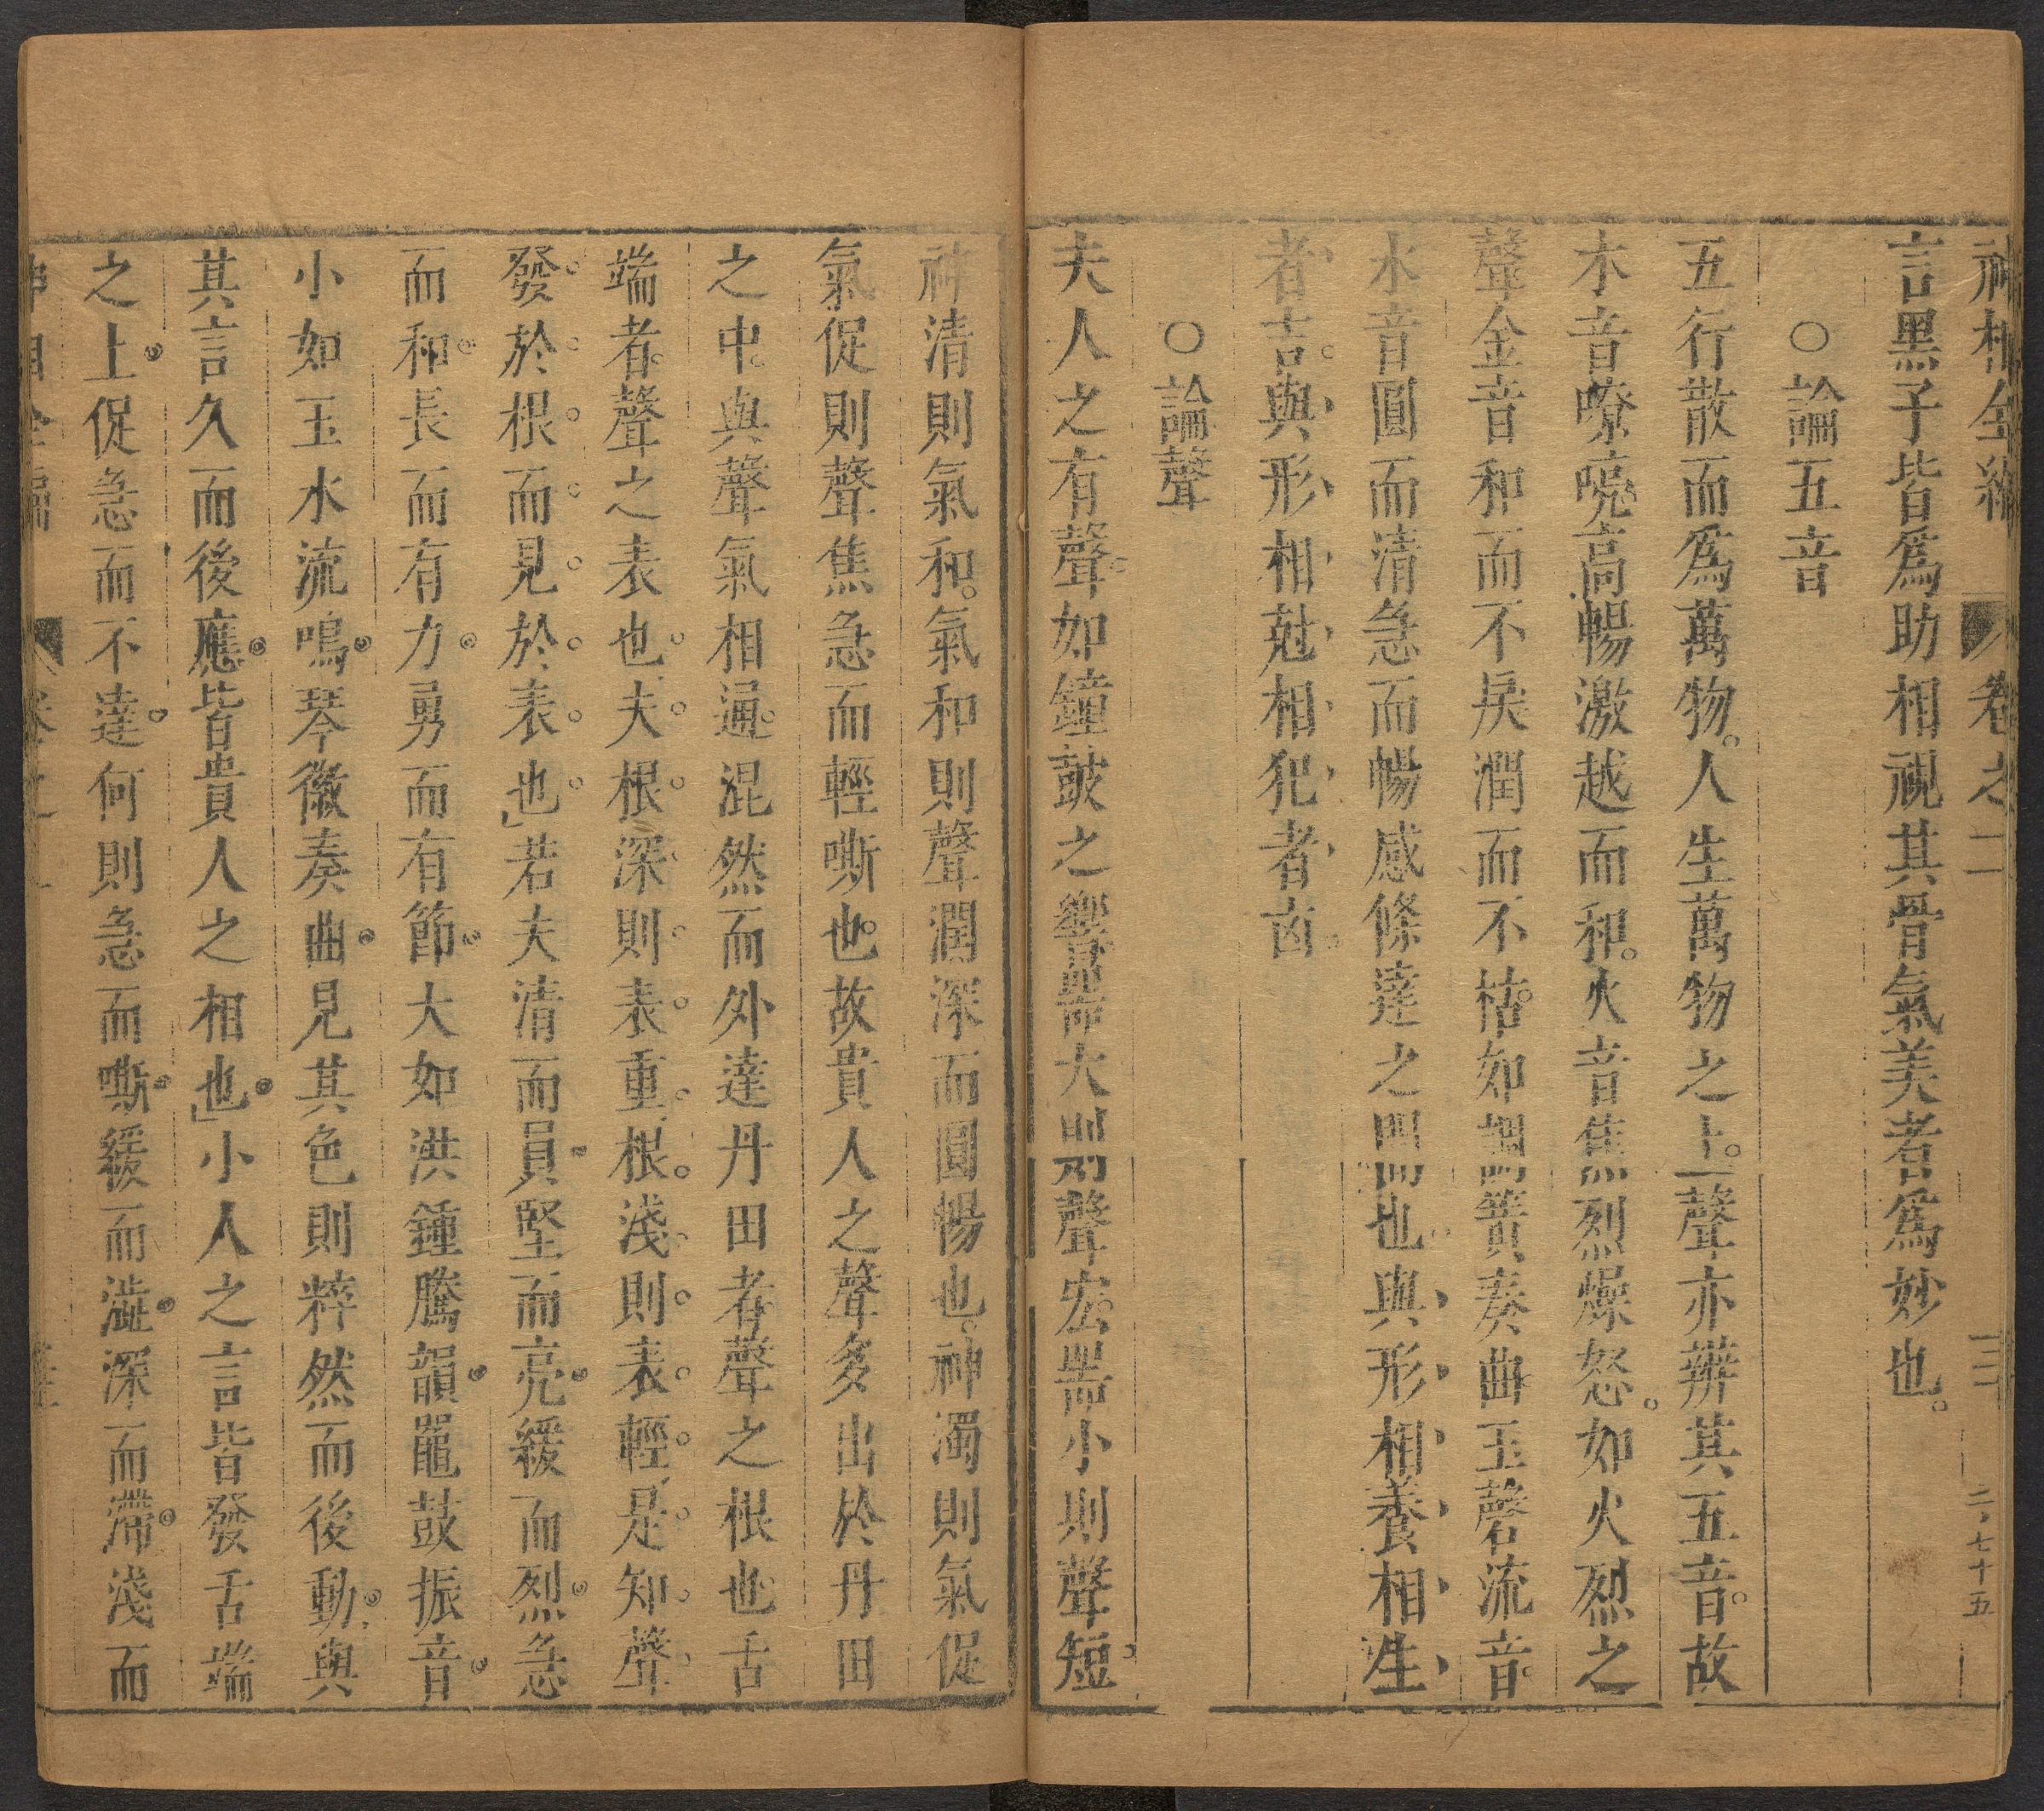 神相全編 卷之二 二、七十五
言黑子皆爲助相視其骨氣美者爲妙也。
○論五音
五行散而爲萬物。人生萬物之上。聲亦辨其五音。故
木音嘹喨高暢激越而和。火音焦烈燥怒。如火烈之
聲金音和而不戾潤而不枯。如調簧奏曲玉磬流音。
水音圓而清急而暢感條達之間也與形相養相生
者吉。與形相尅相犯者凶。
○論聲
夫人之有聲。如鐘鼓之響器大則聲宏。器小則聲短。
神清則氣和。氣和則聲潤深而圓暢也。神濁則氣促
氣促則聲焦急而輕嘶也。故貴人之聲多出於丹田
之中。與聲氣相通。混然而外達丹田者聲之根也舌
端者。聲之表也。夫根深則表重、根淺則表輕、是知聲
發於根而見於表也」若夫清而員堅而亮緩而烈急
而和長而有力勇而有節大如洪鍾騰韻鼉鼓振音
小如玉水流鳴琴徽奏曲見其色則粹然而後動與
其言久而後應皆貴人之相也」小人之言皆發舌端
之上促急而不達。何則急而嘶緩而澁深而滯淺而